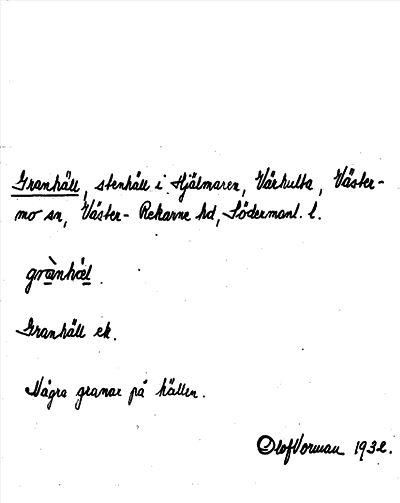 Granhäll, stenhäll i Hjälmaren, Vårhulta, Väster-
mo sn, Väster-Rekarne hd, Södermanl. l.
grànhäl.
Granhäll ek.
Några granar på hällen.
Olof Vorman 1932.